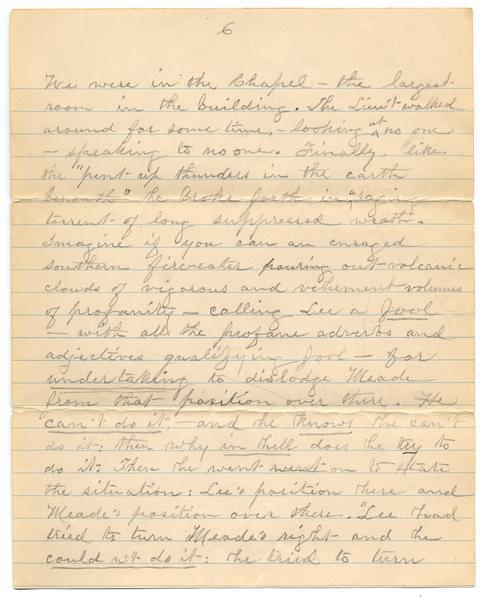 6
We were in the Chapel – the largest
room in the building. The Lieu't walked
around for some time, – looking at no one
– speaking to no one. Finally, like
the "pent up thunders in the earth
beneath" he broke forth in a raging
torrent of long suppressed wrath.
Imagine if you can an enraged
southern fire-eater pouring out volcanic
clouds of vigorous and vehement volumes
of profanity – calling Lee a fool
– with all the profane adverbs and
adjectives qualifying fool – for
undertaking to dislodge Meade
from that position over there. He
can't do it, and he knows he can't
do it; then why in hell does he try to
do it. Then he went went on to state
the situation: Lee's position here and
Meade's position over there. "Lee had
tried to turn Meade's right and he
could n't do it: he tried to turn